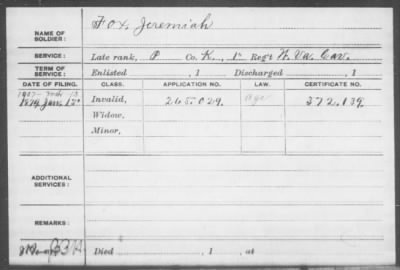 NAME OF SOLDIER: Fox, Jeremiah
SERVICE: Late rank, P Co. K., 1st Reg't W. Va. Cav.
TERM OF SERVICE: Enlisted , 1 Discharged , 1
DATE OF FILING. CLASS. APPLICATION NO. LAW. CERTIFICATE NO.
1907
1879 Jan. Invalid, 265.029. age 372.139.
Widow,
Minor,
ADDITIONAL SERVICES:
REMARKS:
Died , 1 , at